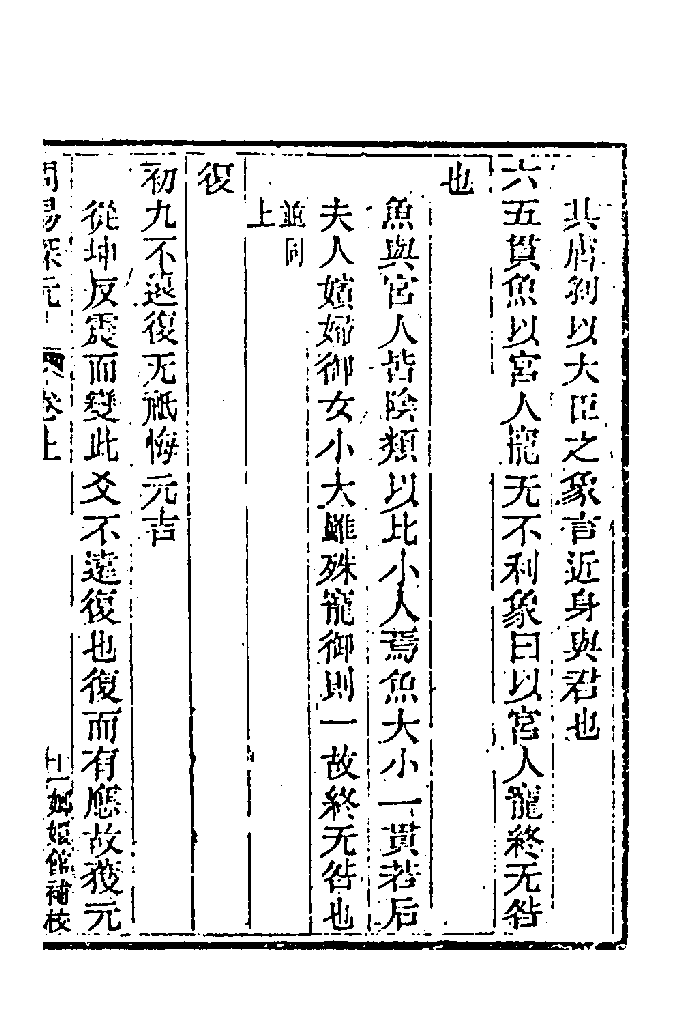 其膚剝以大臣之象言近身與君也
六五貫魚以宮人寵无不利象曰以宮人寵終无咎
也
魚與宮人皆陰類以比小人焉魚大小一貫若后
夫人嬪婦御女小大雖殊寵御則一故終无咎也
並同
上
復
初九不遠復无祗悔元吉
從坤反震而變此爻不遠復也復而有應故獲元
周易探元 卷上
十一 嫏嬛館補校